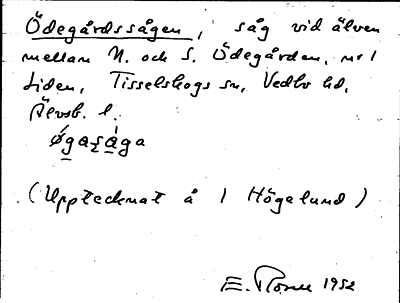 Ödegårdssågen, såg vid älven
mellan N. och S. Ödegården, nr 1
Liden, Tisselskogs sn, Vedbo hd,
Älvsb. l.
(Upptecknat å 1 Högelund)
E. 1952